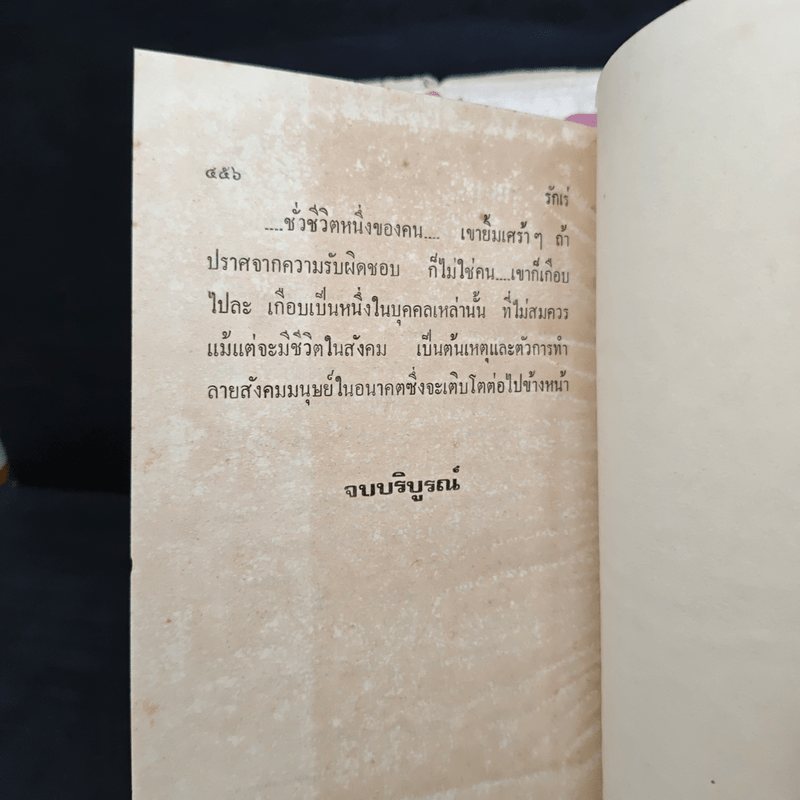 ๔๕๖
รักเร่
....ชั่วชีวิตหนึ่งของคน.... เขายิ้มเศร้าๆ ถ้า
ปราศจากความรับผิดชอบ ก็ไม่ใช่คน....เขาก็เกือบ
ไปละ เกือบเป็นหนึ่งในบุคคลเหล่านั้น ที่ไม่สมควร
แม้แต่จะมีชีวิตในสังคม เป็นต้นเหตุและตัวการทำ
ลายสังคมมนุษย์ในอนาคตซึ่งจะเติบโตต่อไปข้างหน้า
จบบริบูรณ์